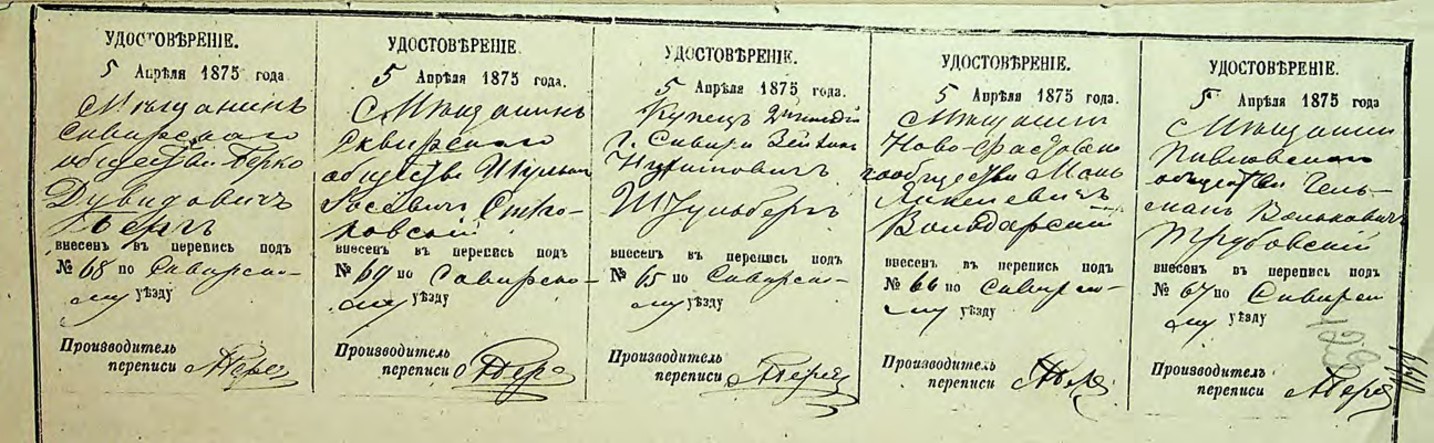 УДОСТОВѢРЕНІЕ.
5 Апрѣля 1875 года.
Мѣщанинъ
Сквирскаго
общества Берко
Дувидовичъ
Бергъ
внесенъ въ перепись подъ
№ 68 по Сквирско-
му уѣзду
Производитель
переписи
УДОСТОВѢРЕНІЕ.
5 Апрѣля 1875 года.
Мѣщанинъ
Сквирскаго
общества
внесенъ въ перепись подъ
№ 69 по Сквирско-
му уѣзду
Производитель
переписи
УДОСТОВѢРЕНІЕ.
5 Апрѣля 1875 года.
Купецъ 2й гильдіи
г. Сквиры
Шульбергъ
внесенъ въ перепись подъ
№ 65 по Сквирско-
му уѣзду
Производитель
переписи
УДОСТОВѢРЕНІЕ.
5 Апрѣля 1875 года.
Мѣщанинъ
Ново-Фастовска
го общества
Янкелевичъ
Володарскій
внесенъ въ перепись подъ
№ 66 по Сквирско-
му уѣзду
Производитель
переписи
УДОСТОВѢРЕНІЕ.
5 Апрѣля 1875 года
Мѣщанинъ
Павловскаго
общества Гель-
манъ Вольковичъ
Трубовскій
внесенъ въ перепись подъ
№ 67 по Сквирско
му уѣзду
Производитель
переписи